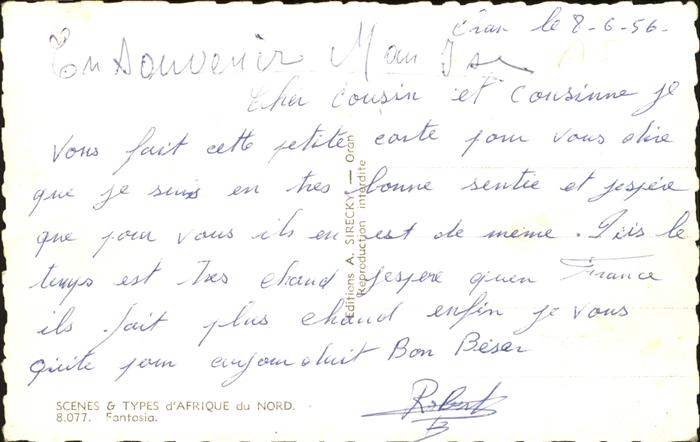 Oran le 8-6-56.
En Souvenir Mon
Cher Cousin et Cousinne je
vous fait cette petite carte pour vous dire
que je suis en tres bonne sentie et jespére
que pour vous ils en est de même. Isis le
temps est tres chaud jespere quen France
ils fait plus chaud enfin je vous
quite pour aujourduit Bon Béser
Robert
B
Editions A. SIRECKY — Oran
Reproduction interdite
SCENES & TYPES d'AFRIQUE du NORD.
8.077. Fantasia.